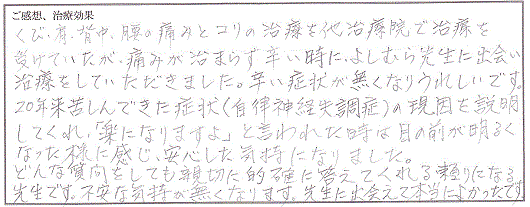 ご感想、治療効果
くび、肩、背中、腰の痛みとコリの治療を他治療院で治療を
受けていたが、痛みが治まらず辛い時に、よしむら先生に出会い
治療をしていただきました。辛い症状が無くなりうれしいです。
20年来苦しんできた症状(自律神経失調症)の現因を説明
してくれ、「楽になりますよ」と言われた時は目の前が明るく
なった様に感じ、安心した気持になりました。
どんな質問をしても親切に的確に答えてくれる頼りになる
先生です。不安な気持が無くなります。先生に出会えて本当によかったです